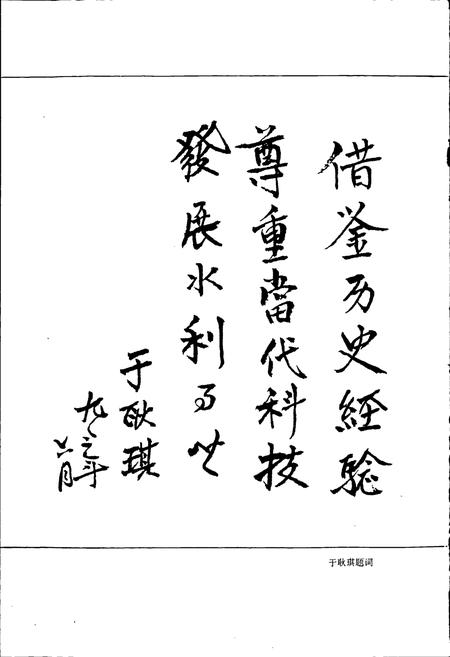 借鉴历史經验
尊重當代科技
發展水利事业
于耿琪
六月
于耿琪题词